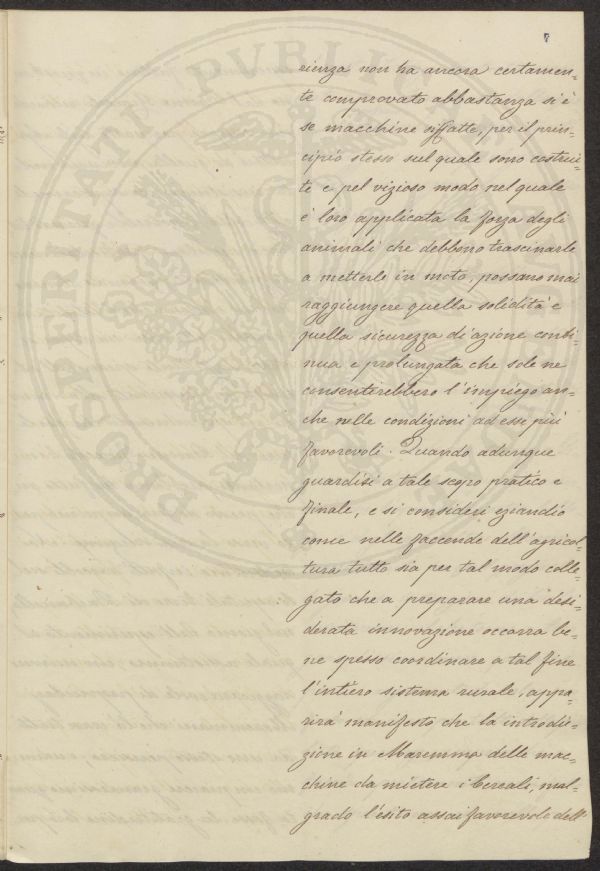 7
rienza non ha ancora certamen=
te comprovato abbastanza si è
se macchine siffatte, per il prin=
cipio stesso sul quale sono costrui=
te e pel vizioso modo nel quale
è loro applicata la forza degli
animali che debbono trascinarle
a metterle in moto, possano mai
raggiungere quella solidità e
quella sicurezza di azione conti=
nua e prolungata che sole ne
consentirebbero l'impiego an=
che nelle condizioni ad esse più
favorevoli. Quando adunque
guardisi a tale scopo pratico e
finale, e si consideri eziandio
come nelle faccende dell'agricol=
tura tutto sia per tal modo colle=
gato che a preparare una desi=
derata innovazione occorra be=
ne spesso coordinare a tal fine
l'intiero sistema rurale, appa=
rirà manifesto che la introdu=
zione in Maremma delle mac=
chine da mietere i Cereali, mal=
grado l'esito assai favorevole dell'
PROSPERITATI PVBLICAE